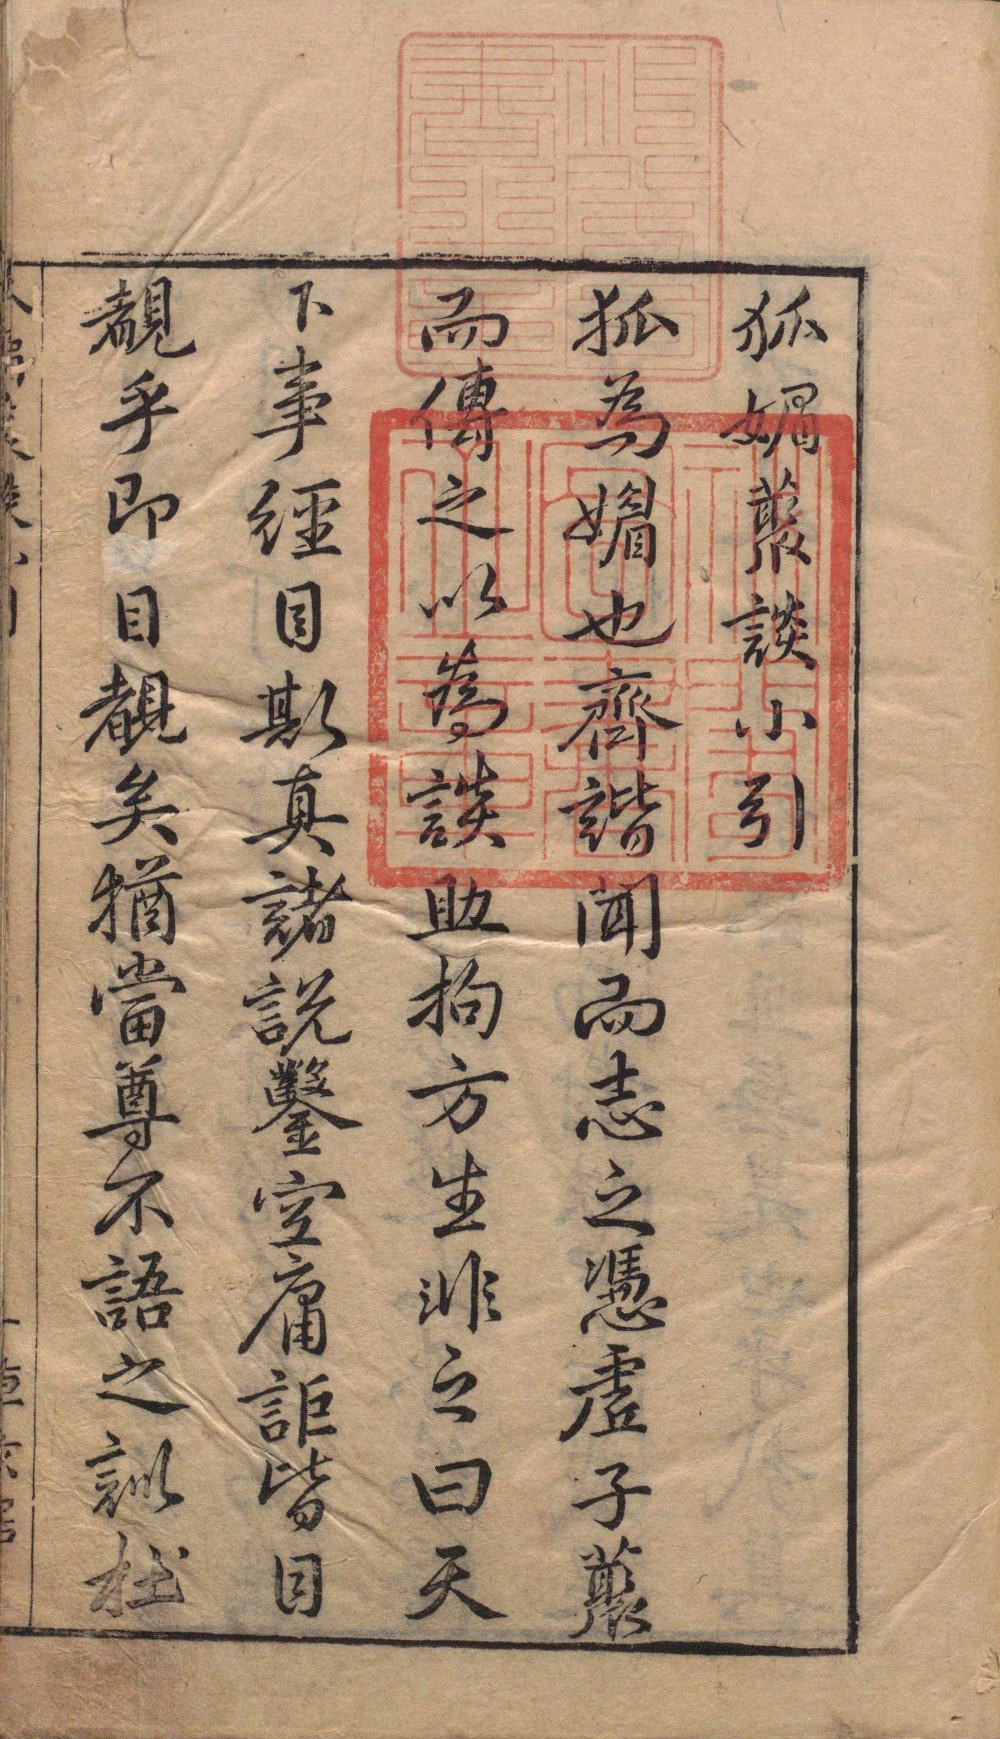 狐媚藂談小引
狐為媚也齊諧聞而志之憑虛子藂
而傳之以為談助拘方生非之曰天
下事經目斯真諸說鑿空庸詎皆目
覩乎即目覩矣猶當尊不語之訓杜